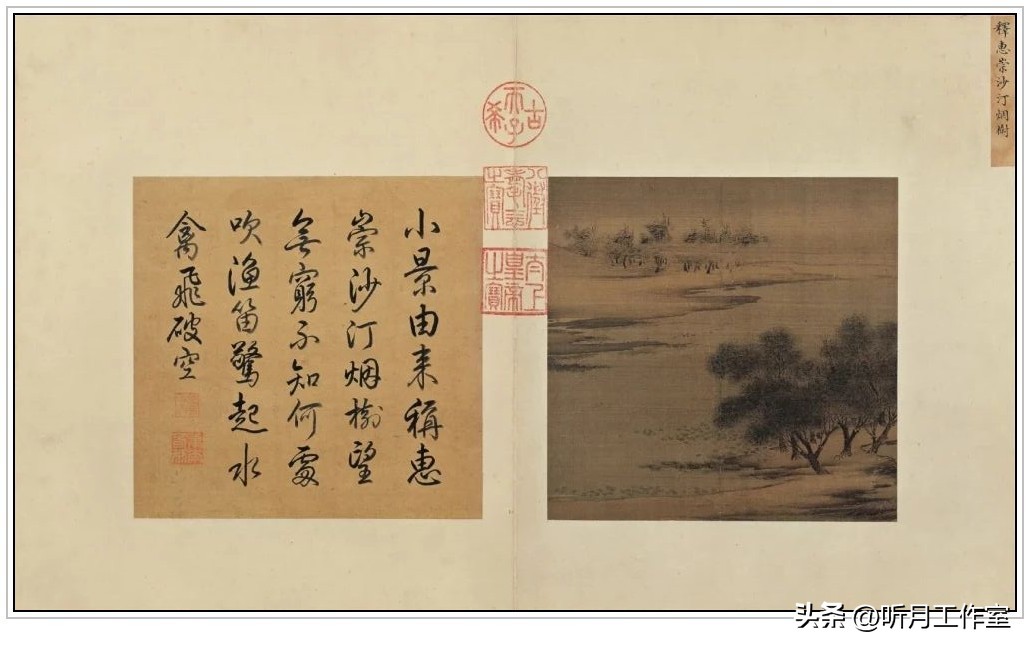 釋惠崇沙汀烟樹
古希天子
八徵耄念之寶
太上皇帝之寶
小景由来稱惠
崇沙汀烟樹望
無窮不知何處
吹漁笛驚起水
禽飛破空
头条 @听月工作室